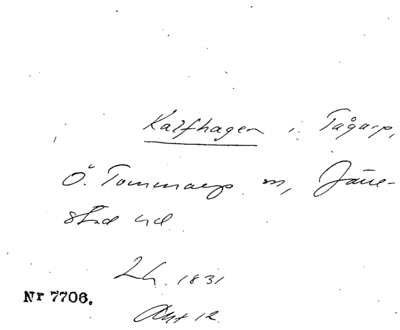 Kalfhagen i Tågarp,
Ö. Tommarp sn, Järre-
stad hd
Lh. 1831
Nr 7706.
Akt 12